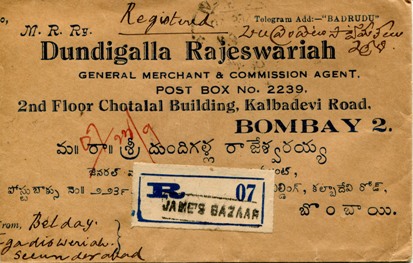 Registered
M. R. Ry.
Telegram Add:-"BADRUDU"
Dundigalla Rajeswariah
GENERAL MERCHANT & COMMISSION AGENT.
POST BOX No. 2239.
2nd Floor Chotalal Building, Kalbadevi Road.
BOMBAY 2.
మ॥ రా॥ శ్రీ దుందిగళ్ల రాజేశ్వరయ్య
జనరల్
R 07
JAMES BAZAAR
పోస్టుబాక్సు నం ౨౨౩౯ ల్డింగ్, కల్బాదేవి రోడ్,
బొంబాయి.
From, Belday
secunderabad